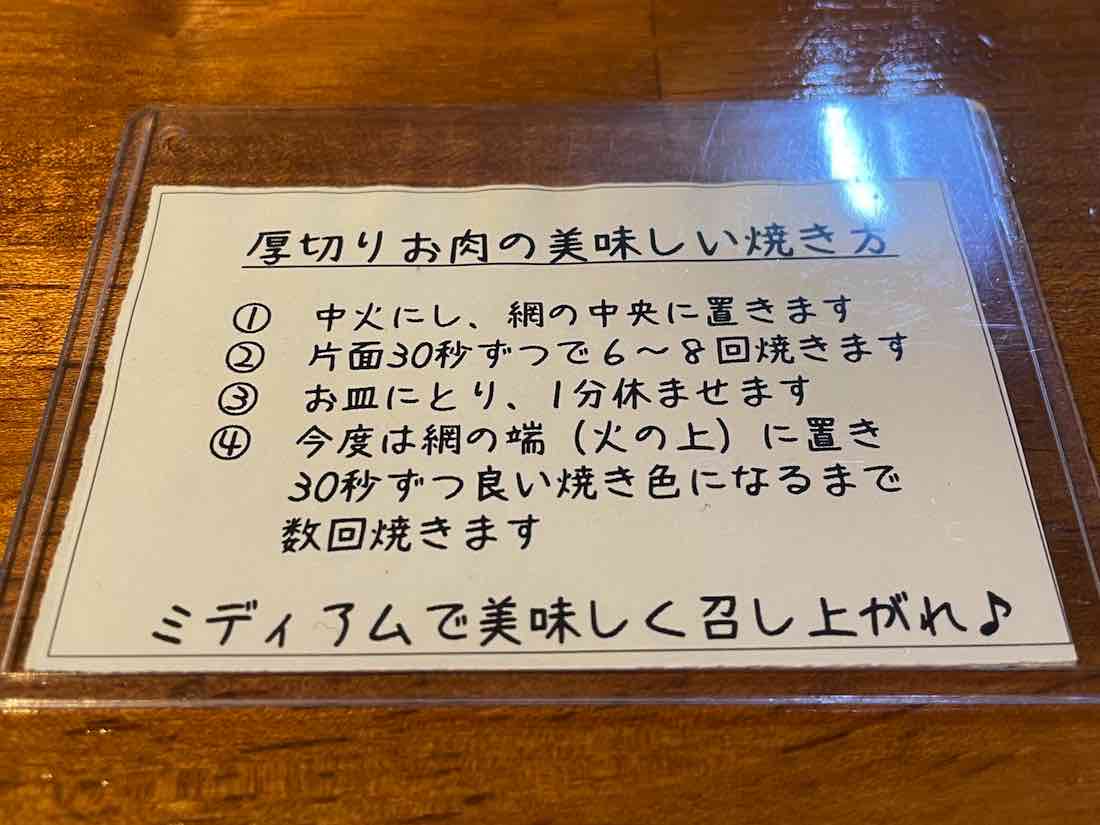 厚切りお肉の美味しい焼き方
① 中火にし、網の中央に置きます
② 片面30秒ずつで6〜8回焼きます
③ お皿にとり、1分休ませます
④ 今度は網の端（火の上）に置き
30秒ずつ良い焼き色になるまで
数回焼きます
ミディアムで美味しく召し上がれ♪